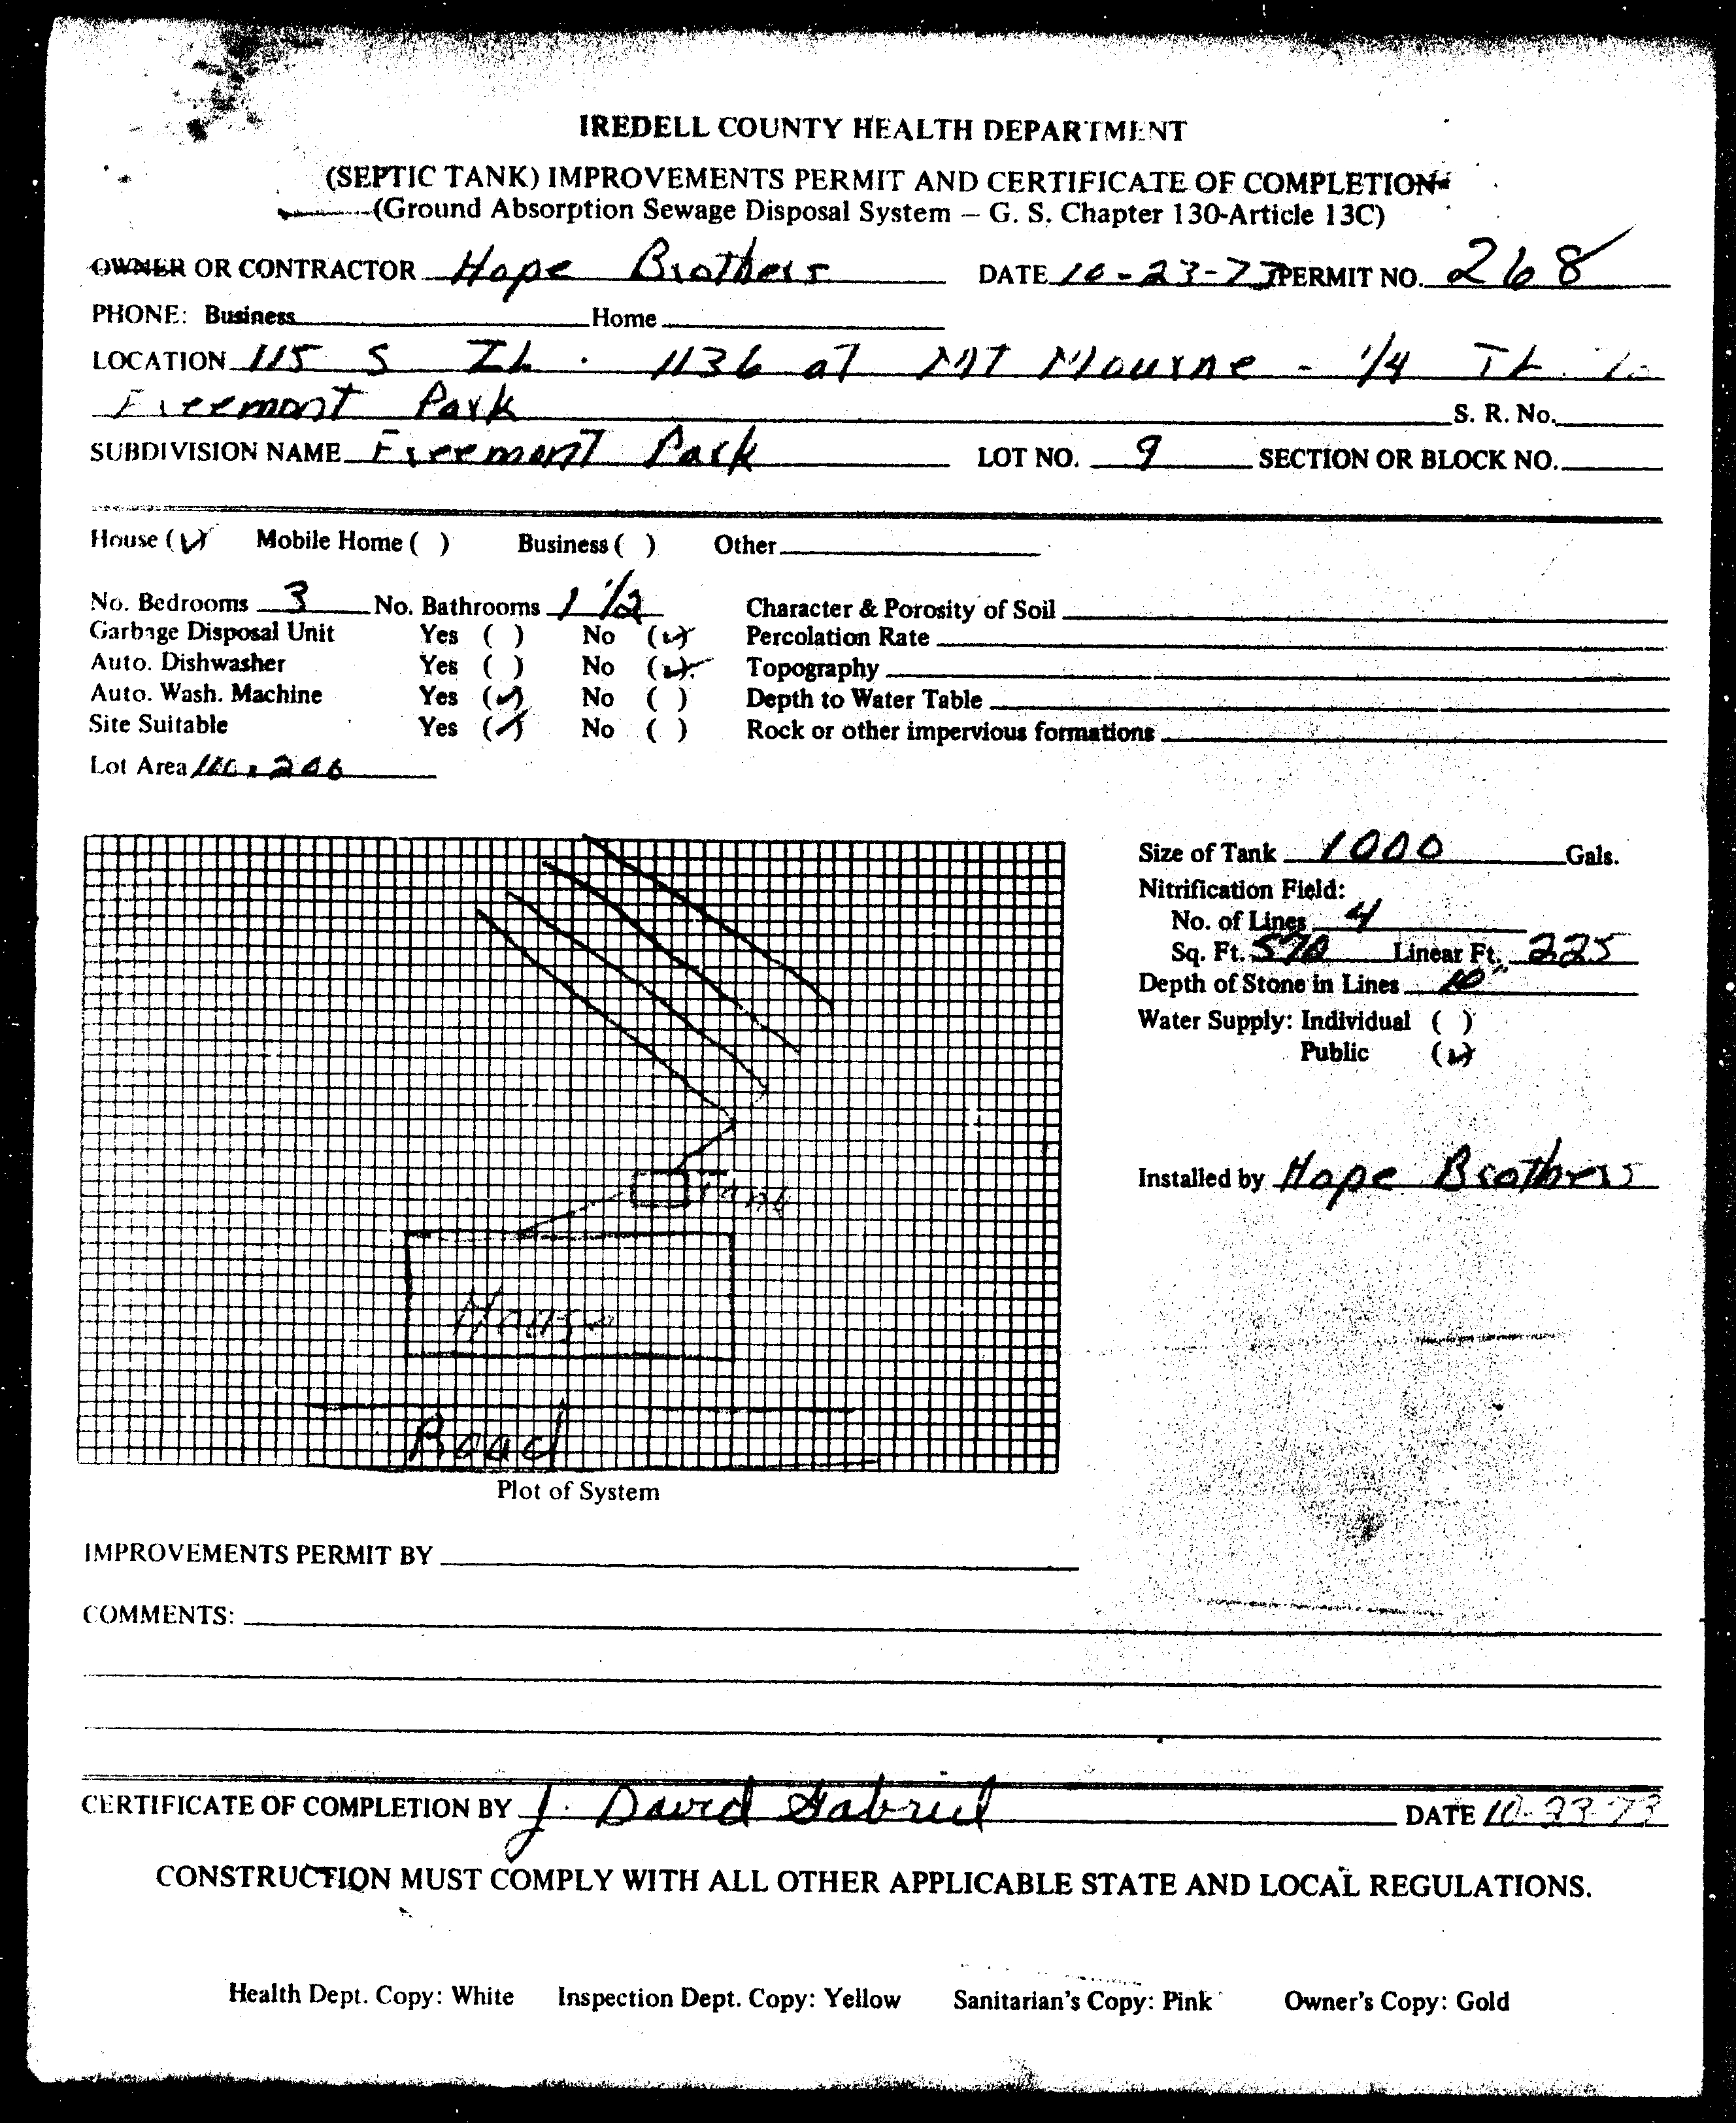 IREDELL COUNTY HEALTH DEPARTMENT
(SEPTIC TANK) IMPROVEMENTS PERMIT AND CERTIFICATE OF COMPLETION
(Ground Absorption Sewage Disposal System – G. S. Chapter 130-Article 13C)
OWNER OR CONTRACTOR Hope Brothers DATE 10-23-73 PERMIT NO. 268
PHONE: Business Home
LOCATION 115 S TL. 1136 at MT Mourne - 1/4 TL. To
Freemont Park S. R. No.
SUBDIVISION NAME Freemont Park LOT NO. 9 SECTION OR BLOCK NO.
House (✓) Mobile Home ( ) Business ( ) Other
No. Bedrooms 3 No. Bathrooms 1 1/2 Character & Porosity of Soil
Garbage Disposal Unit Yes ( ) No (✓) Percolation Rate
Auto. Dishwasher Yes ( ) No (✓) Topography
Auto. Wash. Machine Yes (✓) No ( ) Depth to Water Table
Site Suitable Yes (✓) No ( ) Rock or other impervious formations
Lot Area
Size of Tank 1000 Gals.
Nitrification Field:
No. of Lines 4
Sq. Ft. 570 Linear Ft. 225
Depth of Stone in Lines 10"
Water Supply: Individual ( )
Public (✓)
Installed by Hope Brothers
Tank
House
Road
Plot of System
IMPROVEMENTS PERMIT BY
COMMENTS:
CERTIFICATE OF COMPLETION BY J. David Gabriel DATE 10-23-73
CONSTRUCTION MUST COMPLY WITH ALL OTHER APPLICABLE STATE AND LOCAL REGULATIONS.
Health Dept. Copy: White Inspection Dept. Copy: Yellow Sanitarian's Copy: Pink Owner's Copy: Gold